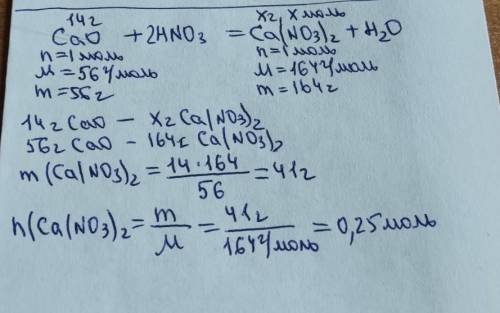 14г x г, x моль
CaO + 2HNO₃ = Ca(NO₃)₂ + H₂O
n = 1 моль n = 1 моль
M = 56 г/моль M = 164 г/моль
m = 56 г m = 164 г
14 г CaO – x г Ca(NO₃)₂
56 г CaO – 164 г Ca(NO₃)₂
m (Ca(NO₃)₂ = 14 · 164 / 56 = 41 г
n(Ca(NO₃)₂ = m / M = 41 г / 164 г/моль = 0,25 моль